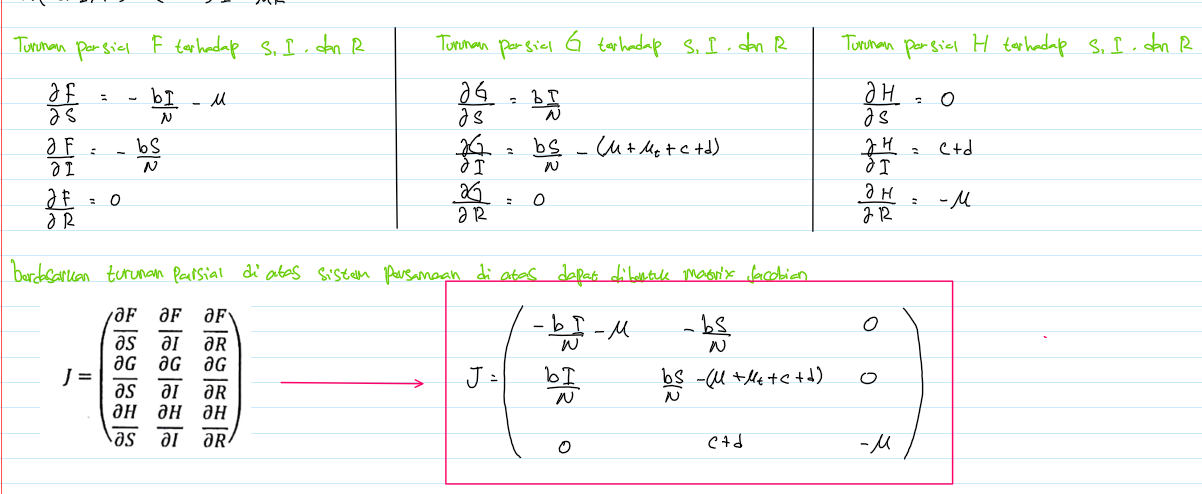 Turunan parsial F terhadap S, I. dan R
∂F/∂S = - bI/N - μ
∂F/∂I = - bS/N
∂F/∂R = 0
Turunan parsial G terhadap S, I. dan R
∂G/∂S = bI/N
∂G/∂I = bS/N - (μ + μt + c + d)
∂G/∂R = 0
Turunan parsial H terhadap S, I. dan R
∂H/∂S = 0
∂H/∂I = c+d
∂H/∂R = -μ
berdasarkan turunan Parsial di atas sistem Persamaan di atas dapat dibentuk matrix Jacobian
J = (∂F/∂S ∂F/∂I ∂F/∂R
∂G/∂S ∂G/∂I ∂G/∂R
∂H/∂S ∂H/∂I ∂H/∂R)
J = (-bI/N - μ -bS/N 0
bI/N bS/N -(μ + μt + c + d) 0
0 c+d -μ)